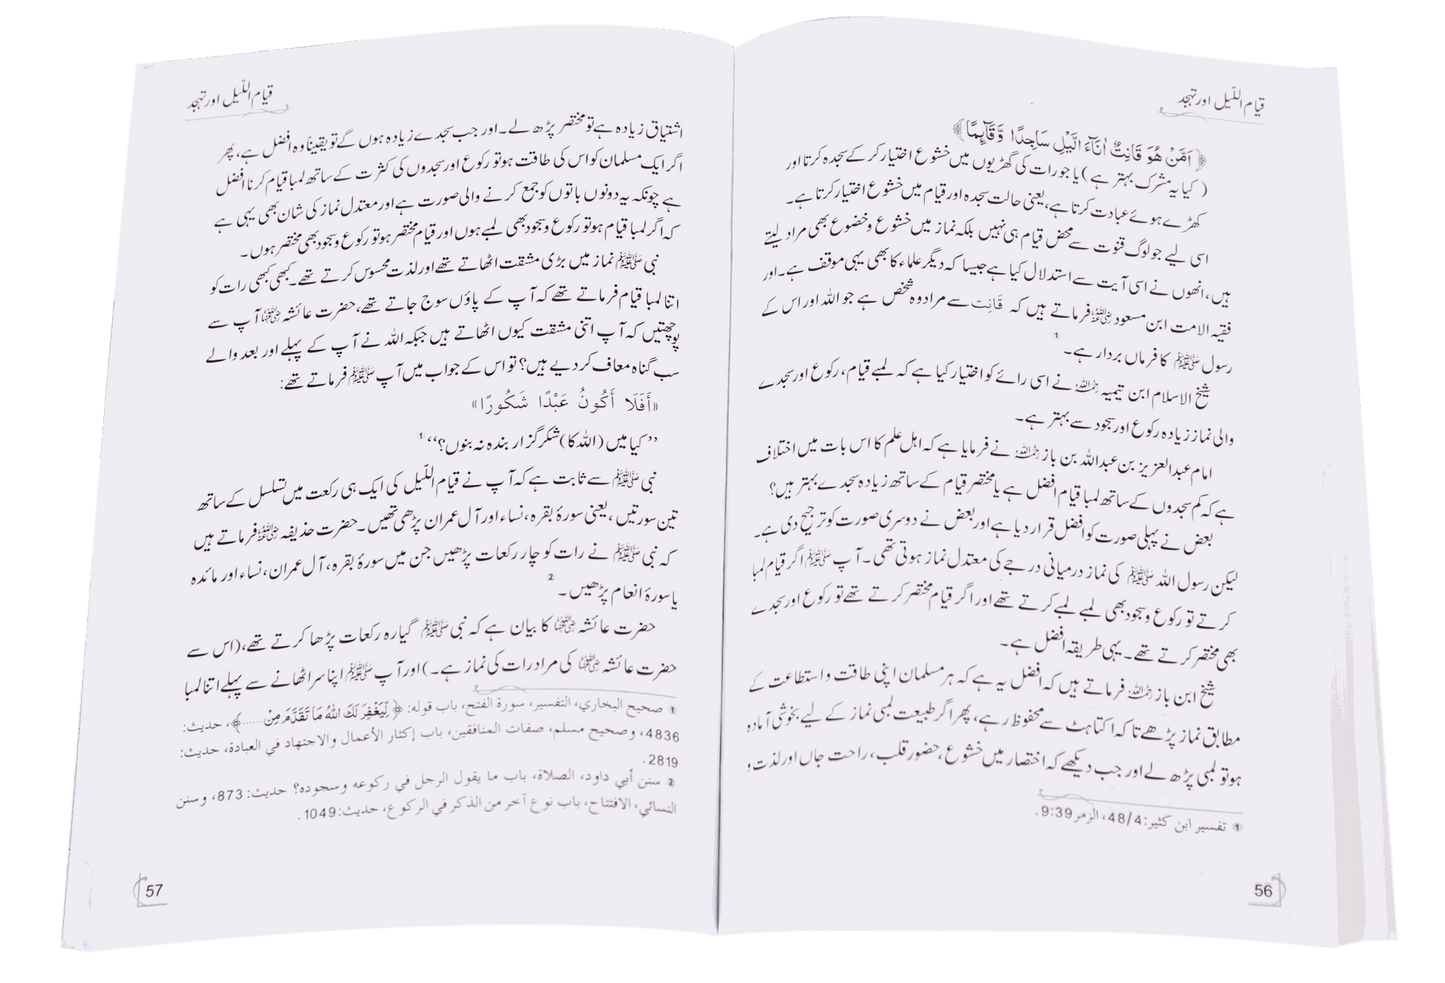 قیام اللّیل اور تہجد
﴿ اَمَّنْ هُوَ قَانِتٌ اٰنَآءَ الَّيْلِ سَاجِدًا وَّقَآىِٕمًا ﴾
( کیا یہ مشرک بہتر ہے ) یا جو رات کی گھڑیوں میں خشوع اختیار کر کے سجدہ کرتا اور
کھڑے ہوئے عبادت کرتا ہے، یعنی حالت سجدہ اور قیام میں خشوع اختیار کرتا ہے۔
اسی لیے جو لوگ قنوت سے محض قیام ہی نہیں بلکہ نماز میں خشوع و خضوع بھی مراد لیتے
ہیں، انھوں نے اسی آیت سے استدلال کیا ہے جیسا کہ دیگر علماء کا بھی یہی موقف ہے۔ اور
فقیہ الامت ابن مسعود رضی اللہ عنہ فرماتے ہیں کہ قَانِت سے مراد وہ شخص ہے جو اللہ اور اس کے
رسول ﷺ کا فرماں بردار ہے۔ 1
شیخ الاسلام ابن تیمیہ رحمہ اللہ نے اسی رائے کو اختیار کیا ہے کہ لمبے قیام، رکوع اور سجدے
والی نماز زیادہ رکوع اور سجود سے بہتر ہے۔
امام عبدالعزیز بن عبداللہ بن باز رحمہ اللہ نے فرمایا ہے کہ اہل علم کا اس بات میں اختلاف
ہے کہ کم سجدوں کے ساتھ لمبا قیام افضل ہے یا مختصر قیام کے ساتھ زیادہ سجدے بہتر ہیں؟
بعض نے پہلی صورت کو افضل قرار دیا ہے اور بعض نے دوسری صورت کو ترجیح دی ہے۔
لیکن رسول اللہ ﷺ کی نماز درمیانی درجے کی معتدل نماز ہوتی تھی۔ آپ ﷺ اگر قیام لمبا
کرتے تو رکوع و سجود بھی لمبے لمبے کرتے تھے اور اگر قیام مختصر کرتے تھے تو رکوع اور سجدے
بھی مختصر کرتے تھے۔ یہی طریقہ افضل ہے۔
شیخ ابن باز رحمہ اللہ فرماتے ہیں کہ افضل یہ ہے کہ ہر مسلمان اپنی طاقت و استطاعت کے
مطابق نماز پڑھے تاکہ اکتاہٹ سے محفوظ رہے، پھر اگر طبیعت لمبی نماز کے لیے بخوشی آمادہ
ہو تو لمبی پڑھ لے اور جب دیکھے کہ اختصار میں خشوع، حضور قلب، راحت جاں اور لذت و
① تفسیر ابن کثیر: 48/4، الزمر 9:39.
56
قیام اللّیل اور تہجد
اشتیاق زیادہ ہے تو مختصر پڑھ لے۔ اور جب سجدے زیادہ ہوں گے تو یقیناً وہ افضل ہے، پھر
اگر ایک مسلمان کو اس کی طاقت ہو تو رکوع اور سجدوں کی کثرت کے ساتھ لمبا قیام کرنا افضل
ہے چونکہ یہ دونوں باتوں کو جمع کرنے والی صورت ہے اور معتدل نماز کی شان بھی یہی ہے
کہ اگر لمبا قیام ہو تو رکوع و سجود بھی لمبے ہوں اور قیام مختصر ہو تو رکوع و سجود بھی مختصر ہوں۔
نبی ﷺ نماز میں بڑی مشقت اٹھاتے تھے اور لذت محسوس کرتے تھے۔ کبھی کبھی رات کو
اتنا لمبا قیام فرماتے تھے کہ آپ کے پاؤں سوج جاتے تھے، حضرت عائشہ رضی اللہ عنہا آپ سے
پوچھتیں کہ آپ اتنی مشقت کیوں اٹھاتے ہیں جبکہ اللہ نے آپ کے پہلے اور بعد والے
سب گناہ معاف کر دیے ہیں؟ تو اس کے جواب میں آپ ﷺ فرماتے تھے:
«أَفَلَا أَكُونُ عَبْدًا شَكُورًا»
’’ کیا میں (اللہ کا) شکر گزار بندہ نہ بنوں؟‘‘ 1
نبی ﷺ سے ثابت ہے کہ آپ نے قیام اللّیل کی ایک ہی رکعت میں تسلسل کے ساتھ
تین سورتیں، یعنی سورۂ بقرہ، نساء اور آل عمران پڑھی تھیں۔ حضرت حذیفہ رضی اللہ عنہ فرماتے ہیں
کہ نبی ﷺ نے رات کو چار رکعات پڑھیں جن میں سورۂ بقرہ، آل عمران، نساء اور مائدہ
یا سورۂ انعام پڑھیں۔ 2
حضرت عائشہ رضی اللہ عنہا کا بیان ہے کہ نبی ﷺ گیارہ رکعات پڑھا کرتے تھے، (اس سے
حضرت عائشہ رضی اللہ عنہا کی مراد رات کی نماز ہے۔) اور آپ ﷺ اپنا سر اٹھانے سے پہلے اتنا لمبا
① صحيح البخاري، التفسير، سورة الفتح، باب قوله: ﴿ لِيَغْفِرَ لَكَ اللّٰهُ مَا تَقَدَّمَ مِنْ ......﴾، حديث:
4836، وصحيح مسلم، صفات المنافقين، باب إكثار الأعمال والاجتهاد في العبادة، حديث:
2819.
② سنن أبي داود، الصلاة، باب ما يقول الرجل في ركوعه وسجوده؟ حديث: 873، وسنن
النسائي، الافتتاح، باب نوع آخر من الذكر في الركوع، حديث: 1049.
57